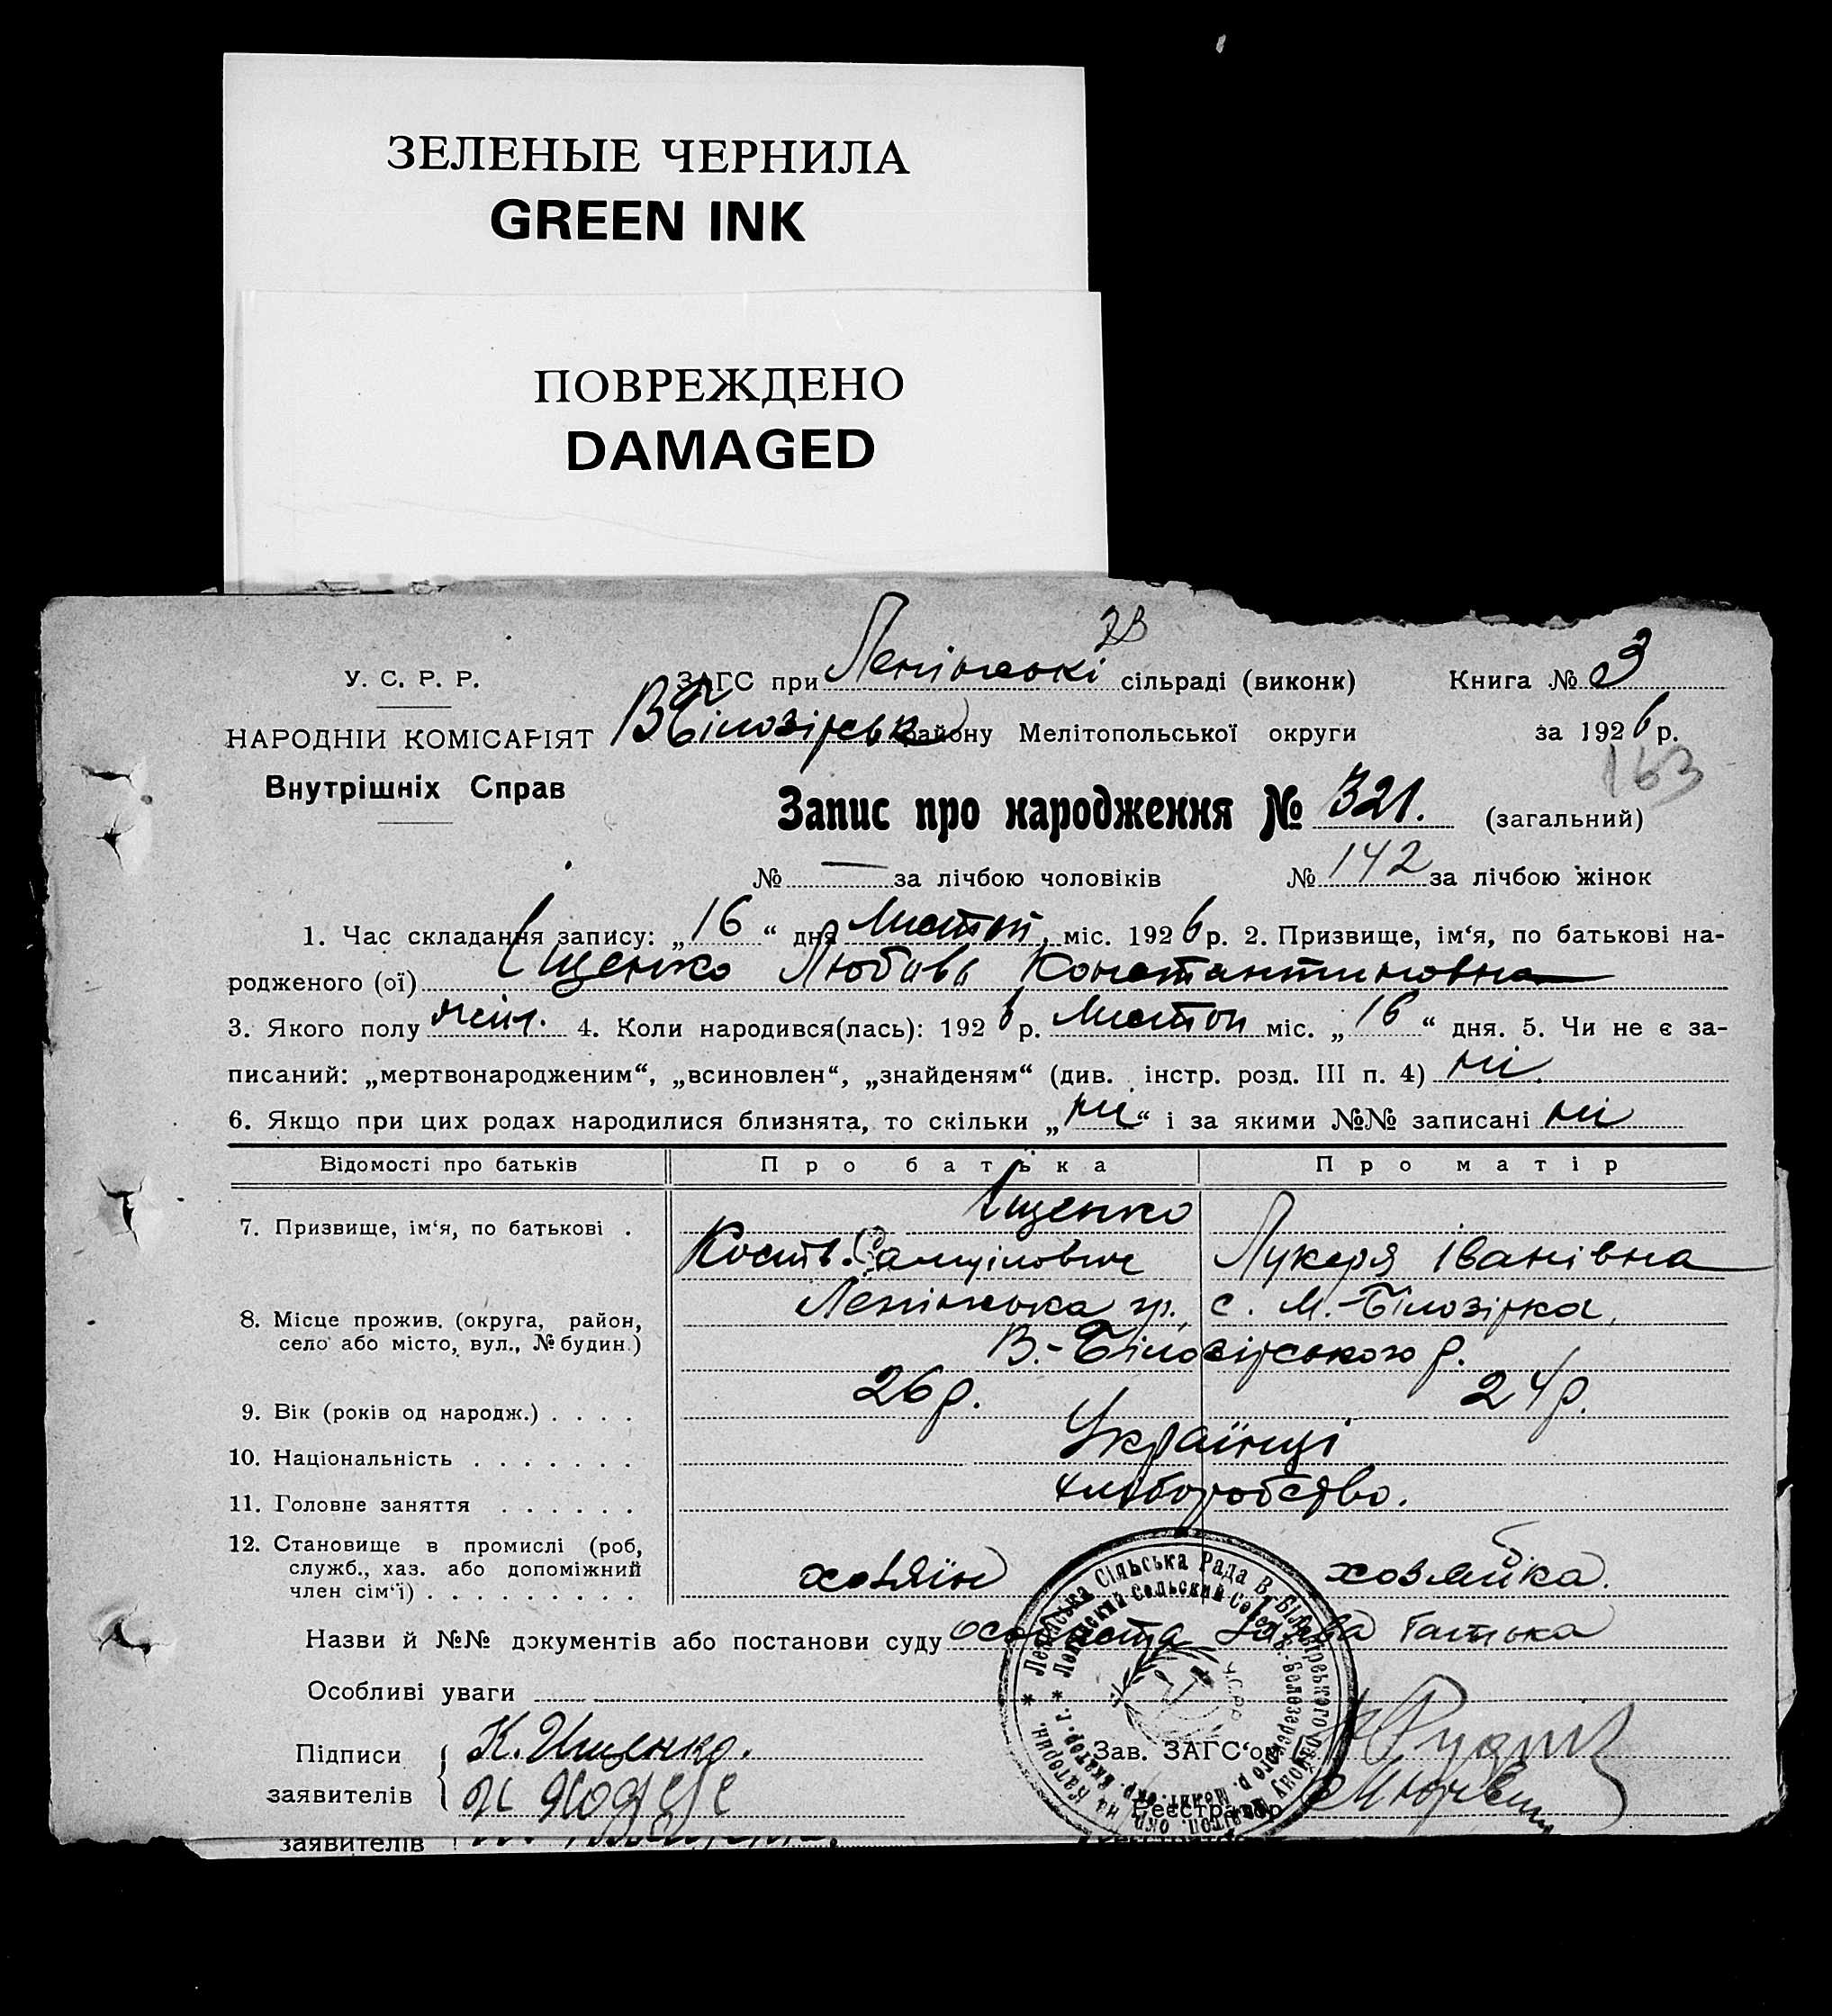 ЗЕЛЕНЫЕ ЧЕРНИЛА
GREEN INK
ПОВРЕЖДЕНО
DAMAGED
У. С. Р. Р.
НАРОДНІЙ КОМІСАРІЯТ
Внутрішніх Справ
ЗАГС при Ленінській сільраді (виконк) Книга № 3
В Білозірськ району Мелітопольської округи за 1926 р.
163
Запис про народження № 321. (загальний)
№ — за лічбою чоловіків № 142 за лічбою жінок
1. Час складання запису: „16“ дня Листоп. міс. 1926 р. 2. Призвище, ім‘я, по батькові на-
родженого (ої) Іщенко Любовь Константиновна
3. Якого полу жін. 4. Коли народився(лась): 1926 р. Листоп міс. „16“ дня. 5. Чи не є за-
писаний: „мертвонародженим“, „всиновлен“, „знайденям“ (див. інстр. розд. III п. 4) ні.
6. Якщо при цих родах народилися близнята, то скільки „ні“ і за якими №№ записані ні
Відомості про батьків Про батька Про матір
7. Призвище, ім‘я, по батькові . Іщенко
Кость. Самуілович Лукеря Іванівна
8. Місце прожив. (округа, район, Ленінська с. М.-Білозірка,
село або місто, вул., № будин.) В.-Білозірського р.
9. Вік (років од народж.) . . . . 26 р. 24 р.
10. Національність . . . . . . . Українці
11. Головне заняття . . . . . . хліборобство.
12. Становище в промислі (роб,
служб., хаз. або допоміжний хозяїн хозяйка.
член сім‘ї) . . . . . . . . .
Назви й №№ документів або постанови суду особиста заява батька
Особливі уваги
Підписи К. Ищенко.
заявителів
Зав. ЗАГС‘ом
Реєстратор
Ленінська Сільська Рада В.-Білозірського району Меліт оп. окр. на Катерин.
Ленинский Сельский Совет В.-Белозерского р. Мелит. окр. Екатер. г.
У.С.Р.Р.
заявителів